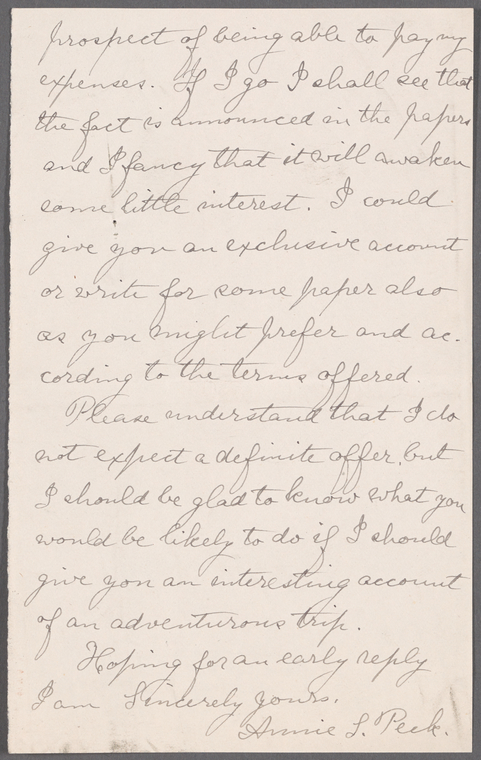 prospect of being able to pay my
expenses. If I go I shall see that
the fact is announced in the papers
and I fancy that it will awaken
some little interest. I could
give you an exclusive account
or write for some paper also
as you might prefer and ac-
cording to the terms offered.
Please understand that I do
not expect a definite offer, but
I should be glad to know what you
would be likely to do if I should
give you an interesting account
of an adventurous trip.
Hoping for an early reply
I am Sincerely yours,
Annie S. Peck.